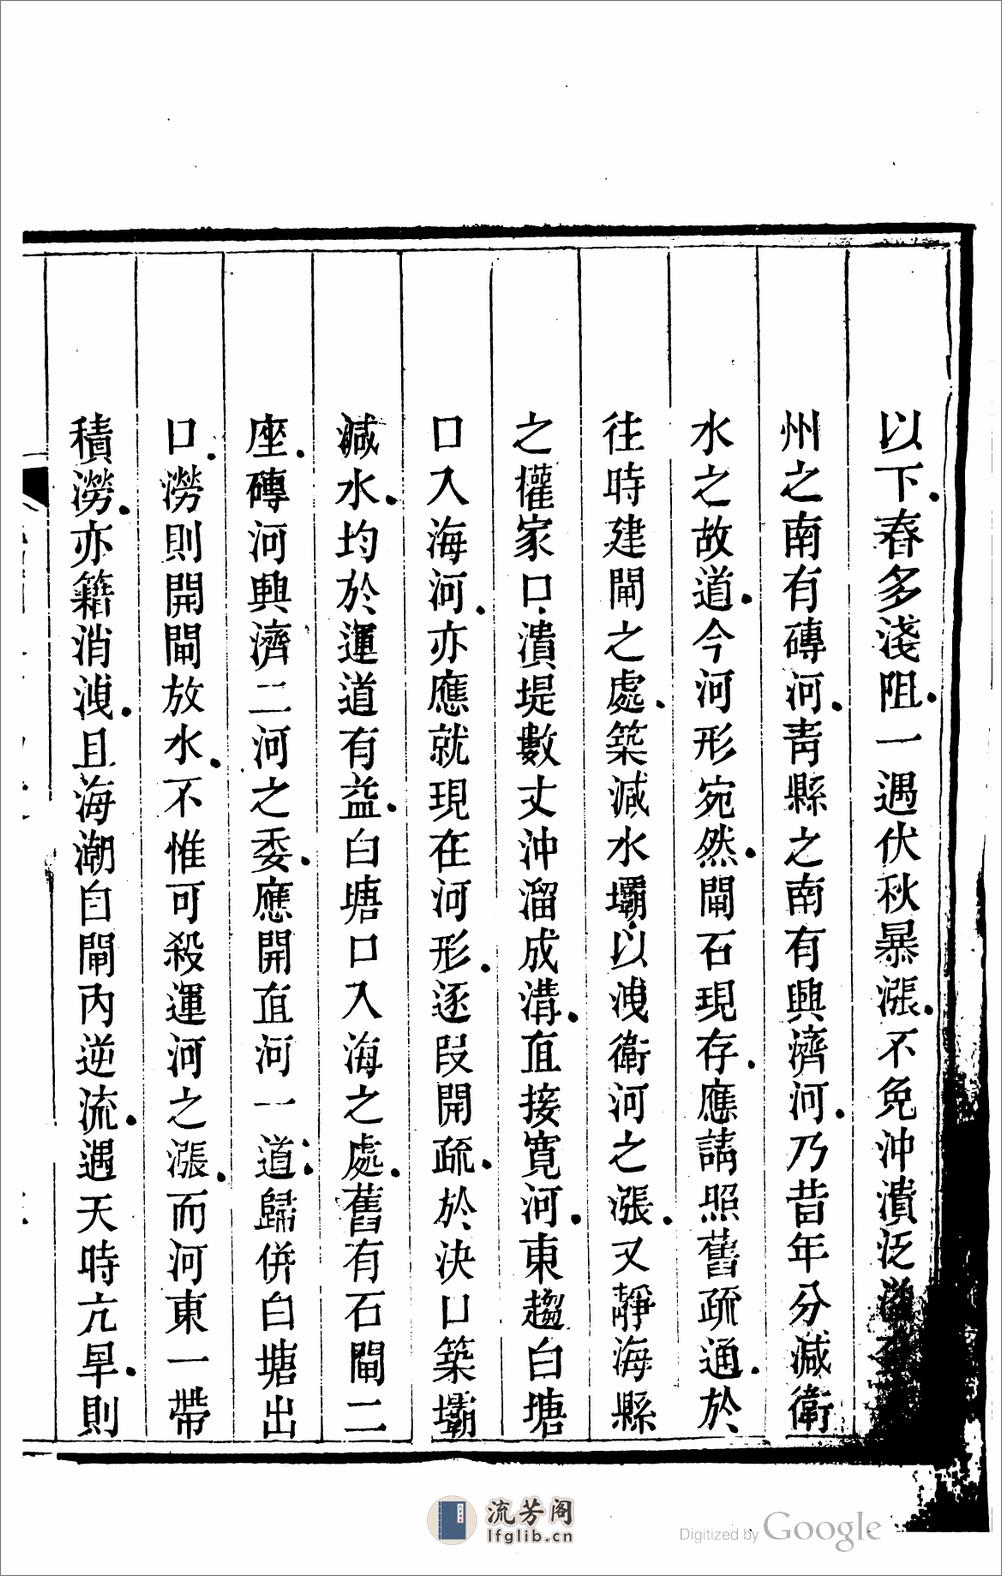 以下春多淺阻一遇伏秋暴漲不免沖潰泛
州之南有磚河靑縣之南有興濟河乃昔年分減衛
水之故道今河形宛然閘石現存應請照舊疏通於
往時建閘之處築減水壩以洩衛河之漲又靜海縣
之權家口潰堤數丈沖溜成溝直接寛河東趨白塘
口入海河亦應就現在河形逐段開疏於決口築壩
減水均於運道有益白塘口入海之處舊有石閘二
座磚河興濟二河之委應開直河一道歸併白塘出
口澇則開閘放水不惟可殺運河之漲而河東一帶
積澇亦籍消洩且海潮自閘內逆流遇天時亢旱則
流芳阁
lfglib.cn
Digitized by Google